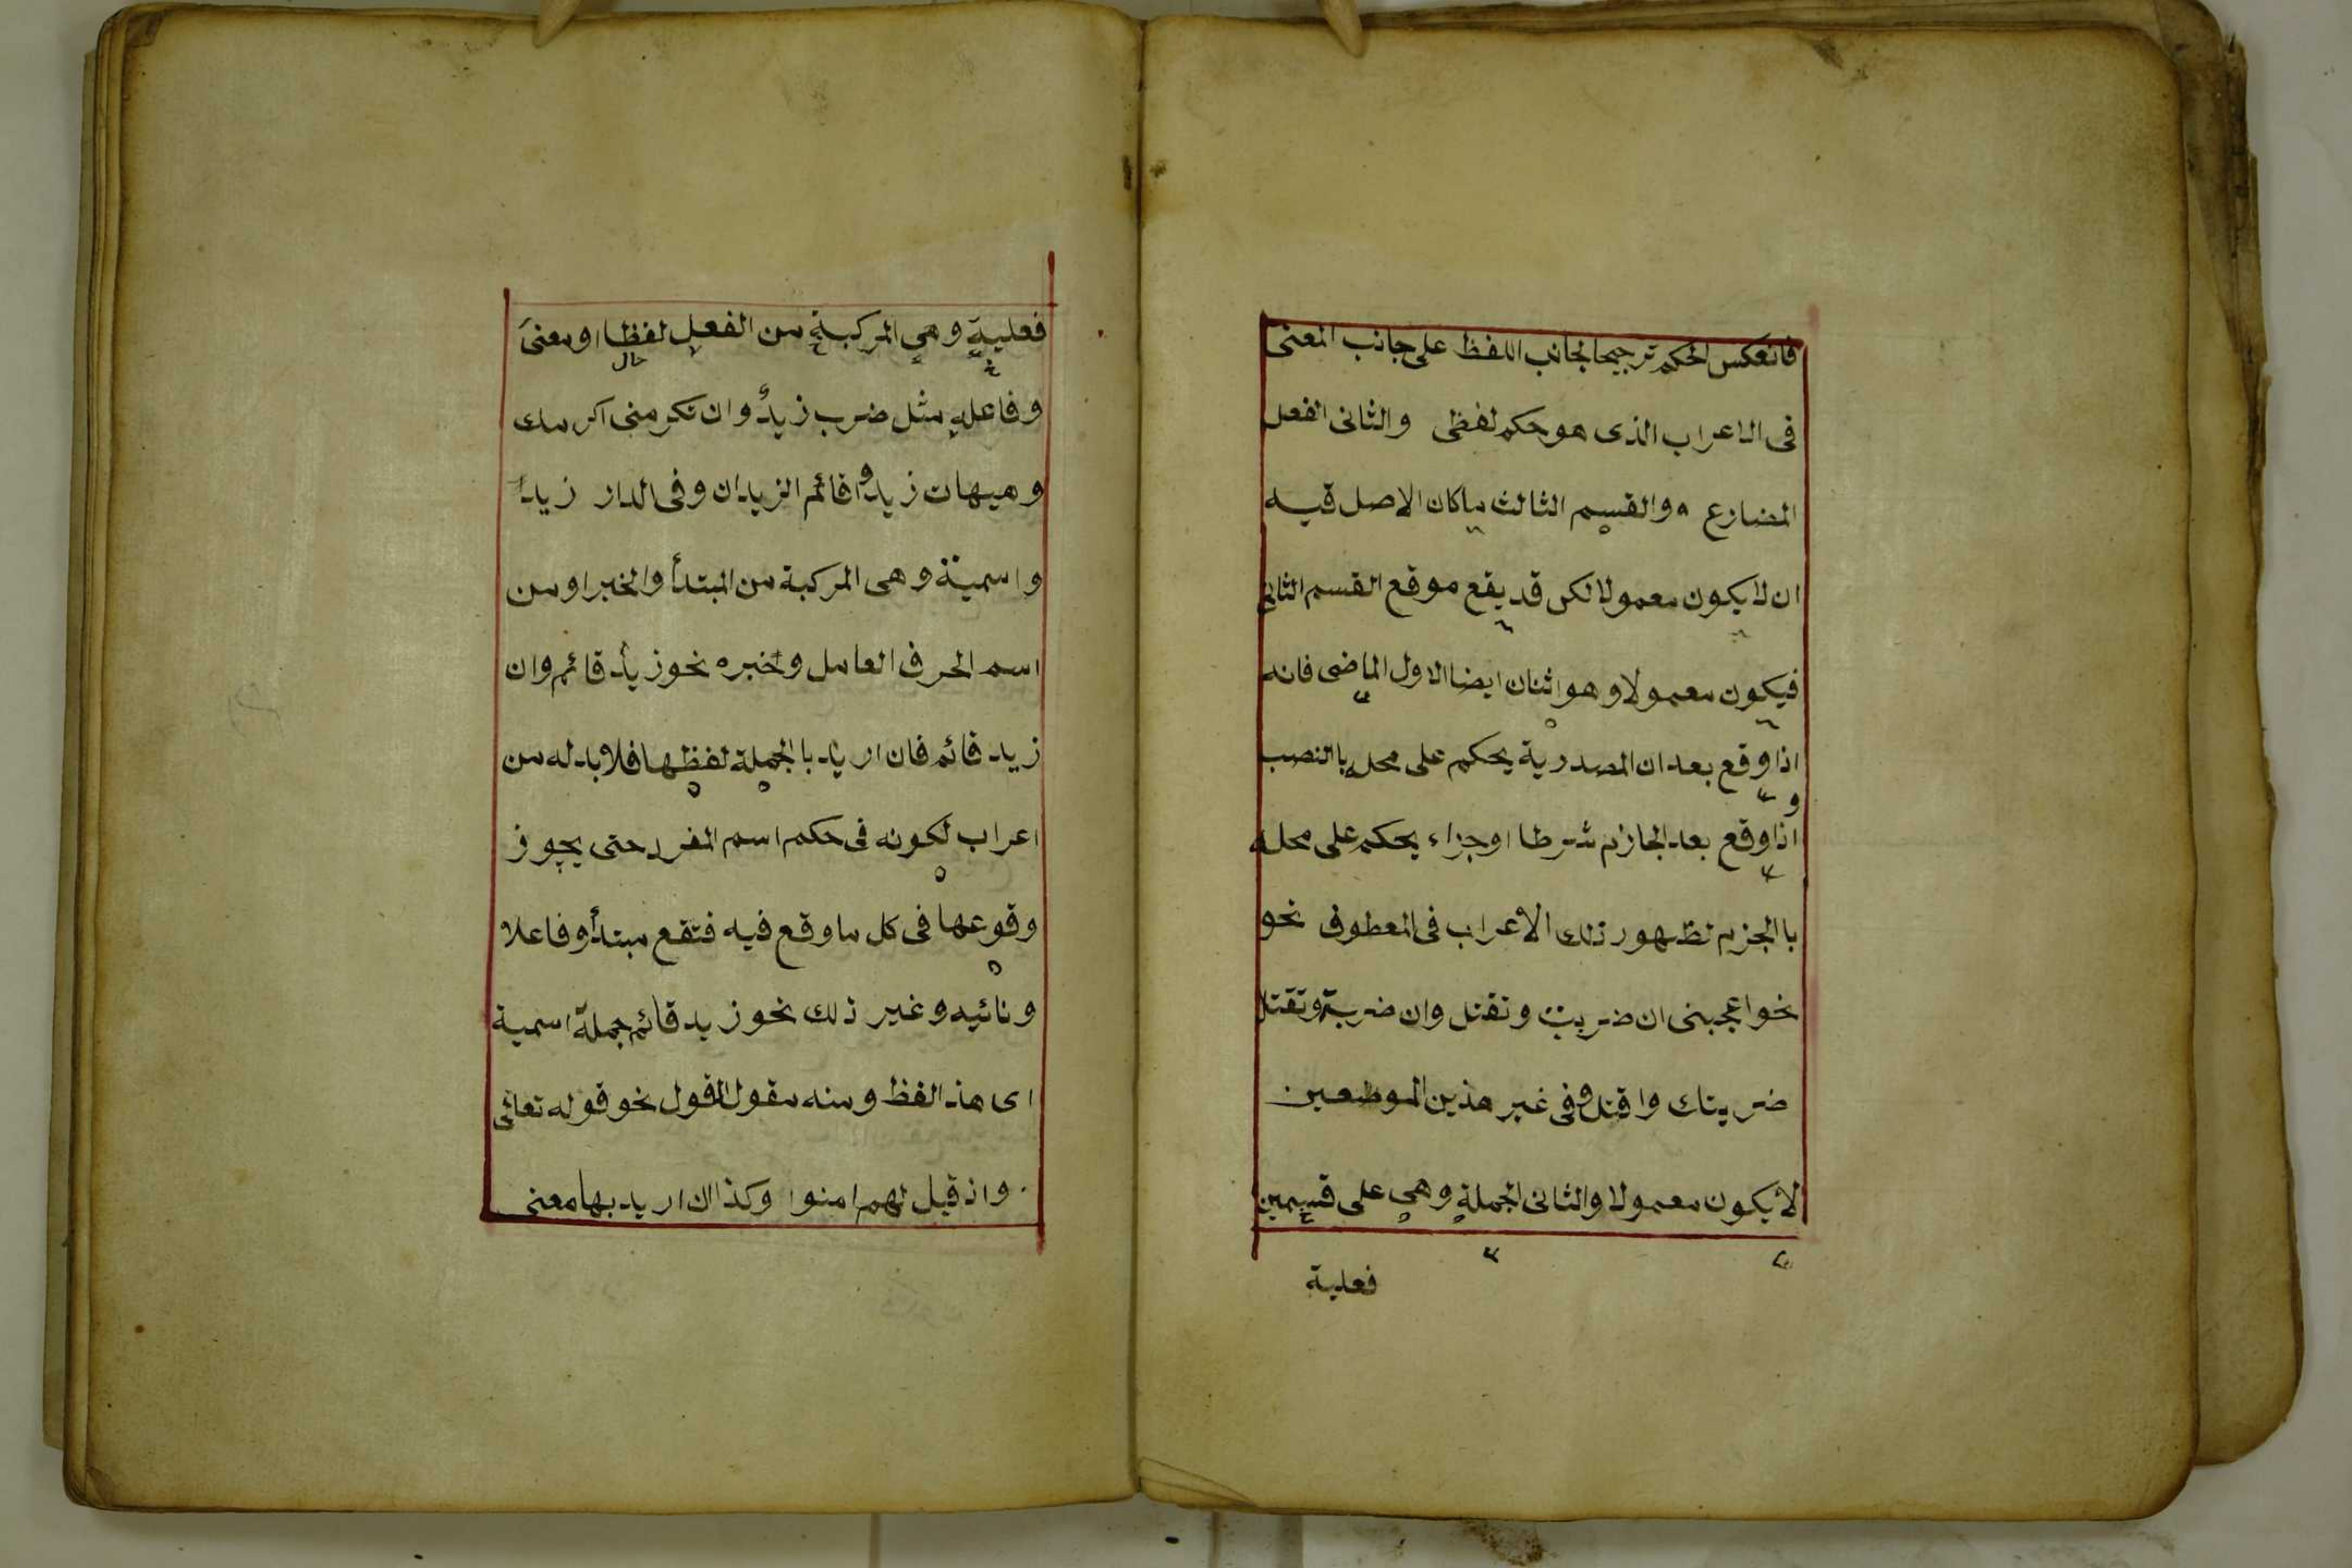 فانعكس الحكم ترجيحا لجانب اللفظ على جانب المعنى
فى الاعراب الذى هو حكم لفظى والثانى الفعل
المضارع ٥ والقسم الثالث ما كان الاصل فيه
ان لا يكون معمولا لكن قد يقع موقع القسم الثانى
فيكون معمولا وهو اثنان ايضا الاول الماضى فانه
اذا وقع بعد ان المصدرية يحكم على محله با النصب
و اذا وقع بعد الجازم شرطا او جزاء يحكم على محله
با الجزم لظهور ذلك الاعراب فى المعطوف نحو
نحو اعجبنى ان ضربت وتقتل وان ضربت وتقتل
ضربتك واقتل وفى غير هذين الموضعين
لا يكون معمولا والثانى الجملة وهي على قسمين
فعلية
فعلية وهي المركبة من الفعل لفظا او معنى
حال
وفاعله مثل ضرب زيدٌ وان تكرمنى اكرمك
وهيهات زيد واقائم الزيدان وفى الدار زيدٌ
واسمية وهى المركبة من المبتدأ والخبر او من
اسم الحرف العامل وخبره نحو زيدٌ قائم وان
زيد قائم فان اريد با الجملة لفظها فلا بد له من
اعراب لكونه فى حكم اسم المفرد حتى يجوز
وقوعها فى كل ما وقع فيه فتقع مبتدأ وفاعلا
ونائبه وغير ذلك نحو زيد قائم جملة اسمية
اى هذ الفظ ومنه مقول القول نحو قوله تعالى
واذ قيل لهم امنوا وكذا ان اريد بها معنى